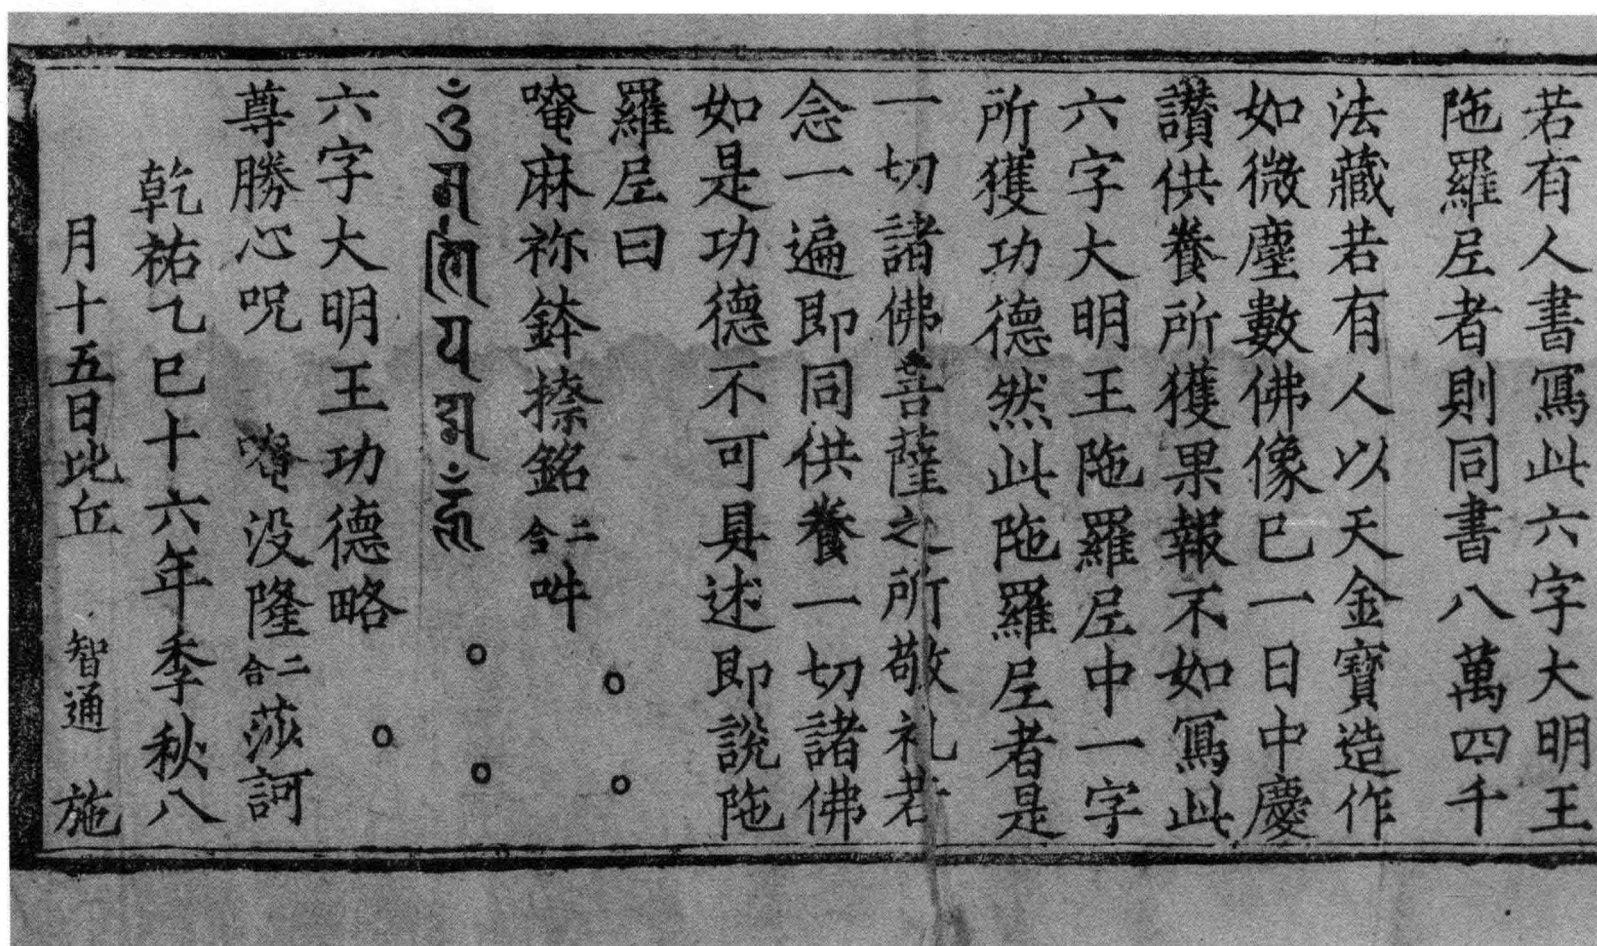 若有人書寫此六字大明王
陁羅𡰱者則同書八萬四千
法藏若有人以天金寶造作
如微塵數佛像已一日中慶
讃供養所獲果報不如寫此
六字大明王陁羅𡰱中一字
所獲功德然此陁羅𡰱者是
一切諸佛菩薩之所敬礼若
念一遍即同供養一切諸佛
如是功德不可具述即說陁
羅𡰱曰
唵麻祢鉢㮈銘二合吽
ॐ म णि प द्मे हूँ
六字大明王功德略
尊勝心呪 唵没隆二合莎訶
乾祐乙巳十六年季秋八
月十五日比丘 智通 施